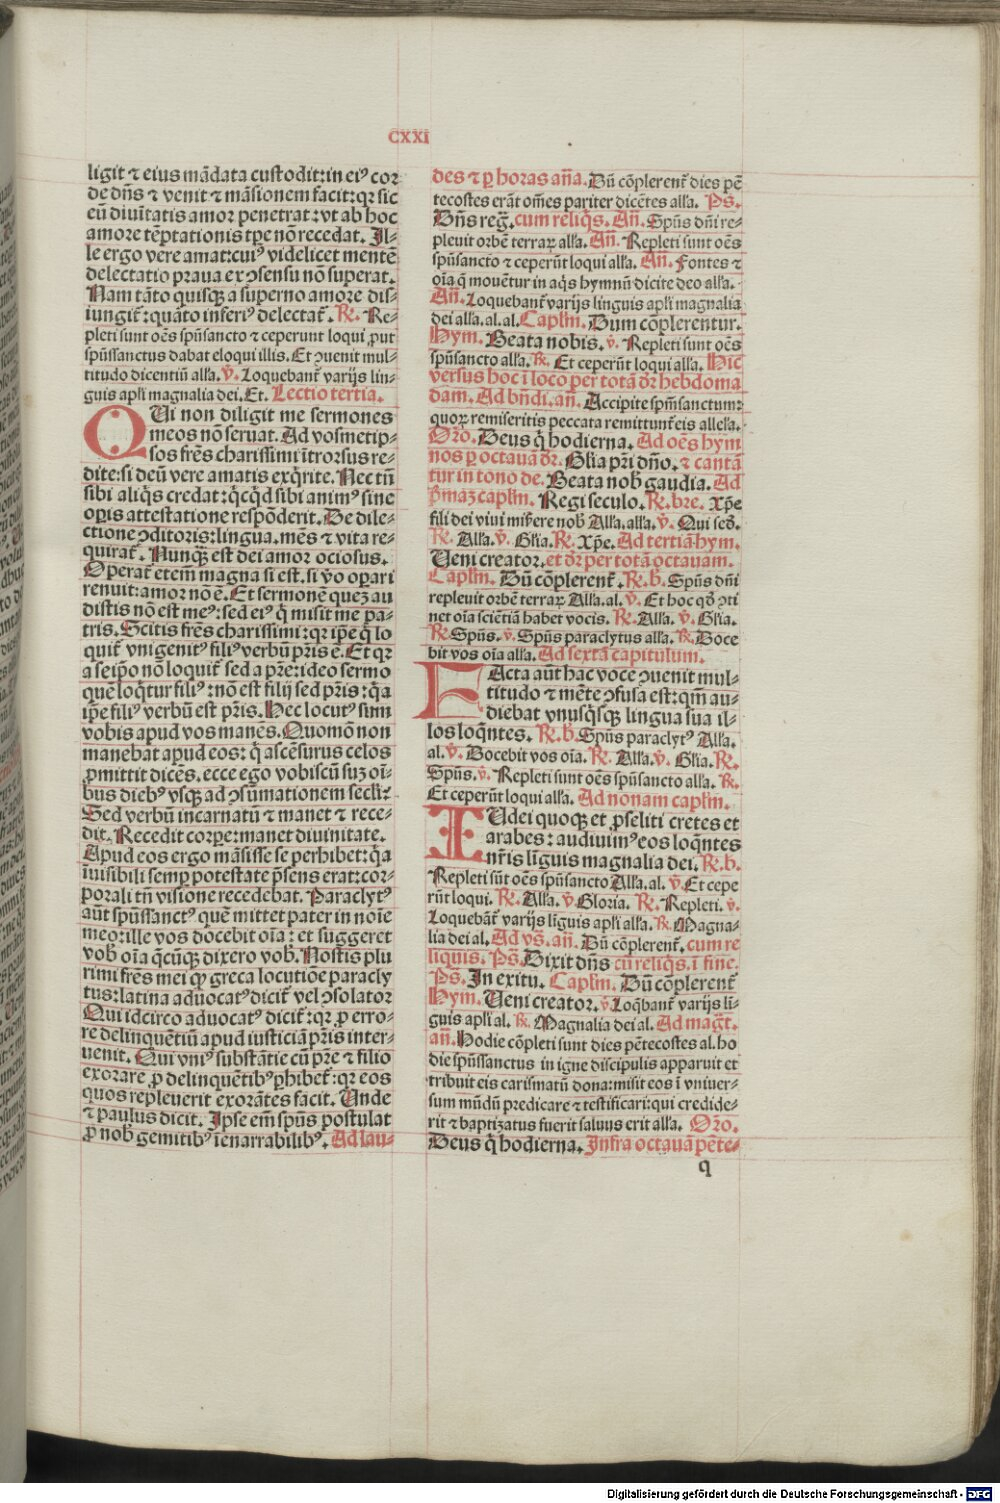 CXXI
ligit ⁊ eius mādata custodit: in eiꝰ cor
de dn̄s ⁊ venit ⁊ māsionem facit: qꝛ sic
eū diuītatis amor penetrat: vt ab hoc
amore tēptationis tp̄e nō recedat. Il-
le ergo vere amat: cuiꝰ videlicet mentē
delectatio praua ex ↄsensu nō superat.
Nam tāto quisqꝫ a superno amore dis-
iungit᷑: quāto inferiꝰ delectat᷑. R̷. Re-
pleti sunt oēs spūsancto ⁊ ceperunt loqui ꝓut
spūssanctus dabat eloqui illis. Et ↄuenit mul-
titudo dicentiū alla. ℣. Loquebant᷑ varijs lin-
guis apl̄i magnalia dei. Et. Lectio tertia.
QUi non diligit me sermones
meos nō seruat. Ad vosmetip-
sos frēs charissimi ītrorsus re-
dite: si deū vere amatis exq̇rite. Nec tn̄
sibi aliq̇s credat: q̇cq̇d sibi animꝰ sine
oꝑis attestatione respōderit. De dile-
ctione ↄditoris: lingua. mēs ⁊ vita re-
quirat᷑. Nunqꝫ est dei amor ociosus.
Operat᷑ etem̄ magna si est. si v̄o oꝑari
renuit: amor nō ē. Et sermonē quez au
distis nō est meꝰ: sed eiꝰ q̇ misit me pa-
tris. Scitis frēs charissimi: qꝛ ip̄e q̇ lo
quit᷑ vnigenitꝰ filiꝰ verbū p̄ris ē. Et qꝛ
a seip̄o nō loquit᷑ sed a p̄re: ideo sermo
quē loq̇tur filiꝰ: nō est filij sed p̄ris: q̇a
ip̄e filiꝰ verbū est p̄ris. Hec locutꝰ sum
vobis apud vos manēs. Quomō non
manebat apud eos: q̇ ascēsurus celos
ꝓmittit dicēs. ecce ego vobiscū suꝫ oī-
bus diebꝰ vsqꝫ ad ↄsūmationem secl̄i?
Sed verbū incarnatū ⁊ manet ⁊ rece-
dit. Recedit corꝑe: manet diuinitate.
Apud eos ergo māsisse se perhibet: q̇a
īuisibili semꝑ potestate p̄sens erat: cor-
porali tn̄ visione recedebat. Paraclytꝰ
aūt spūssanctꝰ quē mittet pater in noīe
meo: ille vos docebit oīa: et suggeret
vob̄ oīa q̄cūqꝫ dixero vob̄. Nostis plu
rimi frēs mei qꝙ greca locutiōe paracly
tus: latina aduocatꝰ dicit᷑ vel ↄsolator
Qui idcirco aduocatꝰ dicit᷑: qꝛ ꝓ erro-
re delinquētiū apud iusticiā p̄ris inter-
uenit. Qui vniꝰ substātie cū p̄re ⁊ filio
exorare ꝓ delinquētibꝰ ꝑhibet᷑: qꝛ eos
quos repleuerit exorātes facit. Unde
⁊ paulus dicit. Ipse em̄ spūs postulat
ꝓ nob̄ gemitibꝰ īenarrabilibꝰ. Ad lau-
des ⁊ ꝑ horas aña. Dū cōplerent᷑ dies pē
tecostes erāt oēs pariter dicētes alla. Ps.
Dn̄s reg̃. cum reliq̇s. Añ. Spūs dn̄i re-
pleuit orbē terraꝝ alla. Añ. Repleti sunt oēs
spūsancto ⁊ ceperūt loqui alla. Añ. Fontes ⁊
oīa q̄ mouētur in aq̇s hymnū dicite deo alla.
Añ. Loquebant᷑ varijs linguis apl̄i magnalia
dei alla. al. al. Caplm̄. Dum cōplerentur.
Hym. Beata nobis. ℣. Repleti sunt oēs
spūsancto alla. R̷. Et ceperūt loqui alla. Hic
versus hoc ī loco ꝑer totā dr̄ hebdoma
dam. Ad bn̄di. añ. Accipite spm̄sanctum:
quoꝝ remiseritis peccata remittunt᷑ eis allela.
Or̄o. Deus q̇ hodierna. Ad oēs hym
nos ꝑ octauā dr̄. Gl̄ia p̄ri dn̄o. ⁊ cantā
tur in tono de. Beata nob̄ gaudia. Ad
p̄maꝫ caplm̄. Regi seculo. R̷. bre. Xp̄e
fili dei viui mis̄ere nob̄ Alla. alla. ℣. Qui sed̄.
R̷. Alla. ℣. Gl̄ia. R̷. Xp̄e. Ad tertiā hym.
Ueni creator. et dr̄ ꝑer totā octauam.
Caplm̄. Dū cōplerent᷑. R̷. b̄. Spūs dn̄i
repleuit orbē terraꝝ Alla. al. ℣. Et hoc qd̄ ↄti
net oīa sciētiā habet vocis. R̷. Alla. ℣. Gl̄ia.
R̷. Spūs. ℣. Spūs paraclytus alla. R̷. Doce
bit vos oīa alla. Ad sextā capitulum.
FActa aūt hac voce ↄuenit mul-
titudo ⁊ mēte ↄfusa est: qm̄ au-
diebat vnusq̇sqꝫ lingua sua il-
los loq̄ntes. R̷. b̄. Spūs paraclytꝰ Alla.
al. ℣. Docebit vos oīa. R̷. Alla. ℣. Gl̄ia. R̷.
Spūs. ℣. Repleti sunt oēs spūsancto alla. R̷.
Et ceperūt loqui alla. Ad nonam caplm̄.
IUdei quoqꝫ et ꝓseliti cretes et
arabes: audiuimꝰ eos loq̄ntes
nr̄is līguis magnalia dei. R̷. b̄.
Repleti sūt oēs spūsancto Alla. al. ℣. Et cepe
rūt loqui. R̷. Alla. ℣. Gloria. R̷. Repleti. ℣.
Loquebāt᷑ varijs līguis apl̄i alla. R̷. Magna-
lia dei al. Ad vs̄. añ. Dū cōplerent᷑. cum re
liquis. Ps̄. Dixit dn̄s cū reliq̇s. ī fine.
Ps̄. In exitu. Caplm̄. Dū cōplerent᷑
Hym. Ueni creator. ℣. Loq̄bant᷑ varijs lī-
guis apl̄i al. R̷. Magnalia dei al. Ad mag̃t.
añ. Hodie cōpleti sunt dies pētecostes al. ho
die spūssanctus in igne discipulis apparuit et
tribuit eis carismatū dona: misit eos ī vniuer-
sum mūdū predicare ⁊ testificari: qui credide-
rit ⁊ baptizatus fuerit saluus erit alla. Or̄o.
Deus q̇ hodierna. Infra octauā pēte-
q
Digitalisierung gefördert durch die Deutsche Forschungsgemeinschaft - DFG